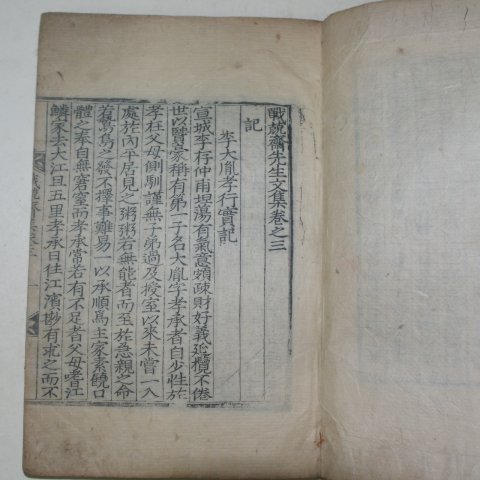 戰兢齋先生文集卷之三
記
李大胤孝行實記
宣城李存仲甫坦蕩有氣意頗疎財好義延攬不倦
世以賢家稱有弟一子名大胤字孝承者自少性於
孝在父母側馴謹無子弟過及授室以來未嘗一入
處於內平居見之粥粥若無能者而至於急親之命
若鷙鳥之發不擇事難易一以承順爲主家素饒口
體之奉自無窘窒而孝承常若有不足者父母嗜江
鱗家去大江且五里孝承日往江濱尠有求之而不